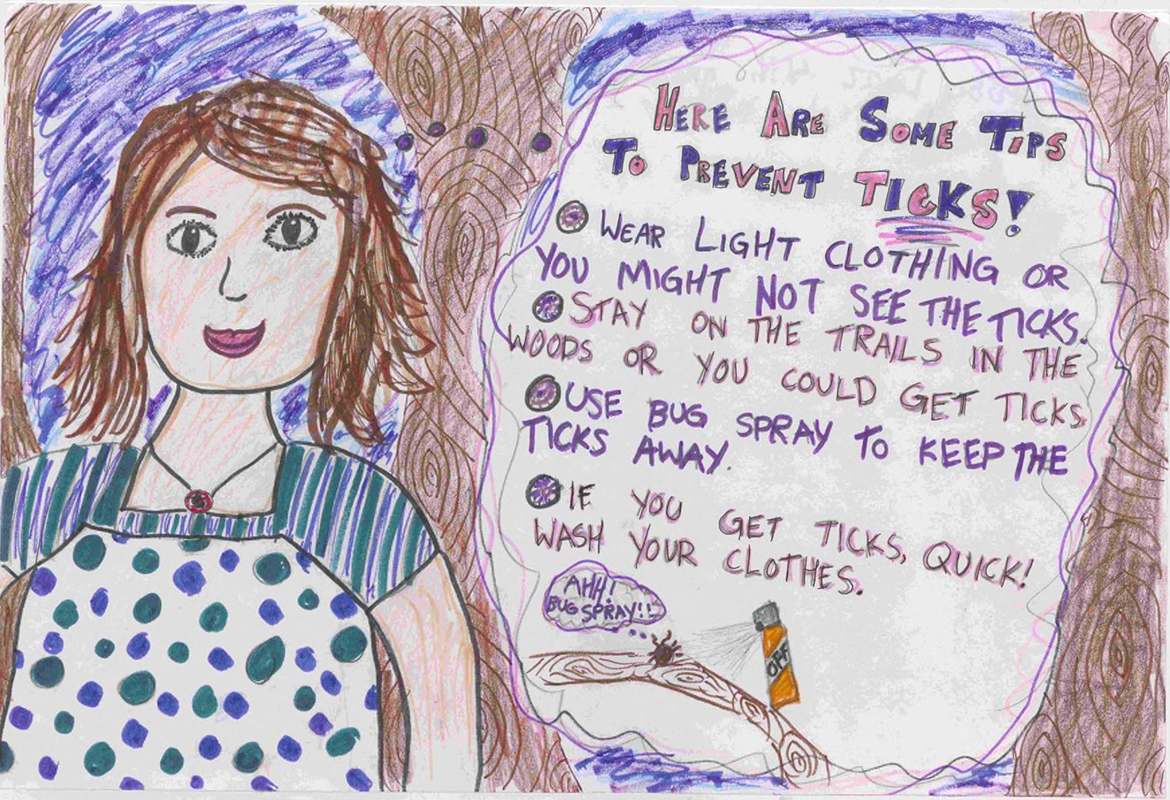 HERE ARE SOME TIPS
TO PREVENT TICKS!
WEAR LIGHT CLOTHING OR
YOU MIGHT NOT SEE THE TICKS.
STAY ON THE TRAILS IN THE
WOODS OR YOU COULD GET TICKS.
USE BUG SPRAY TO KEEP THE
TICKS AWAY.
IF YOU GET TICKS, QUICK!
WASH YOUR CLOTHES.
AHH!
BUG SPRAY!!
OFF